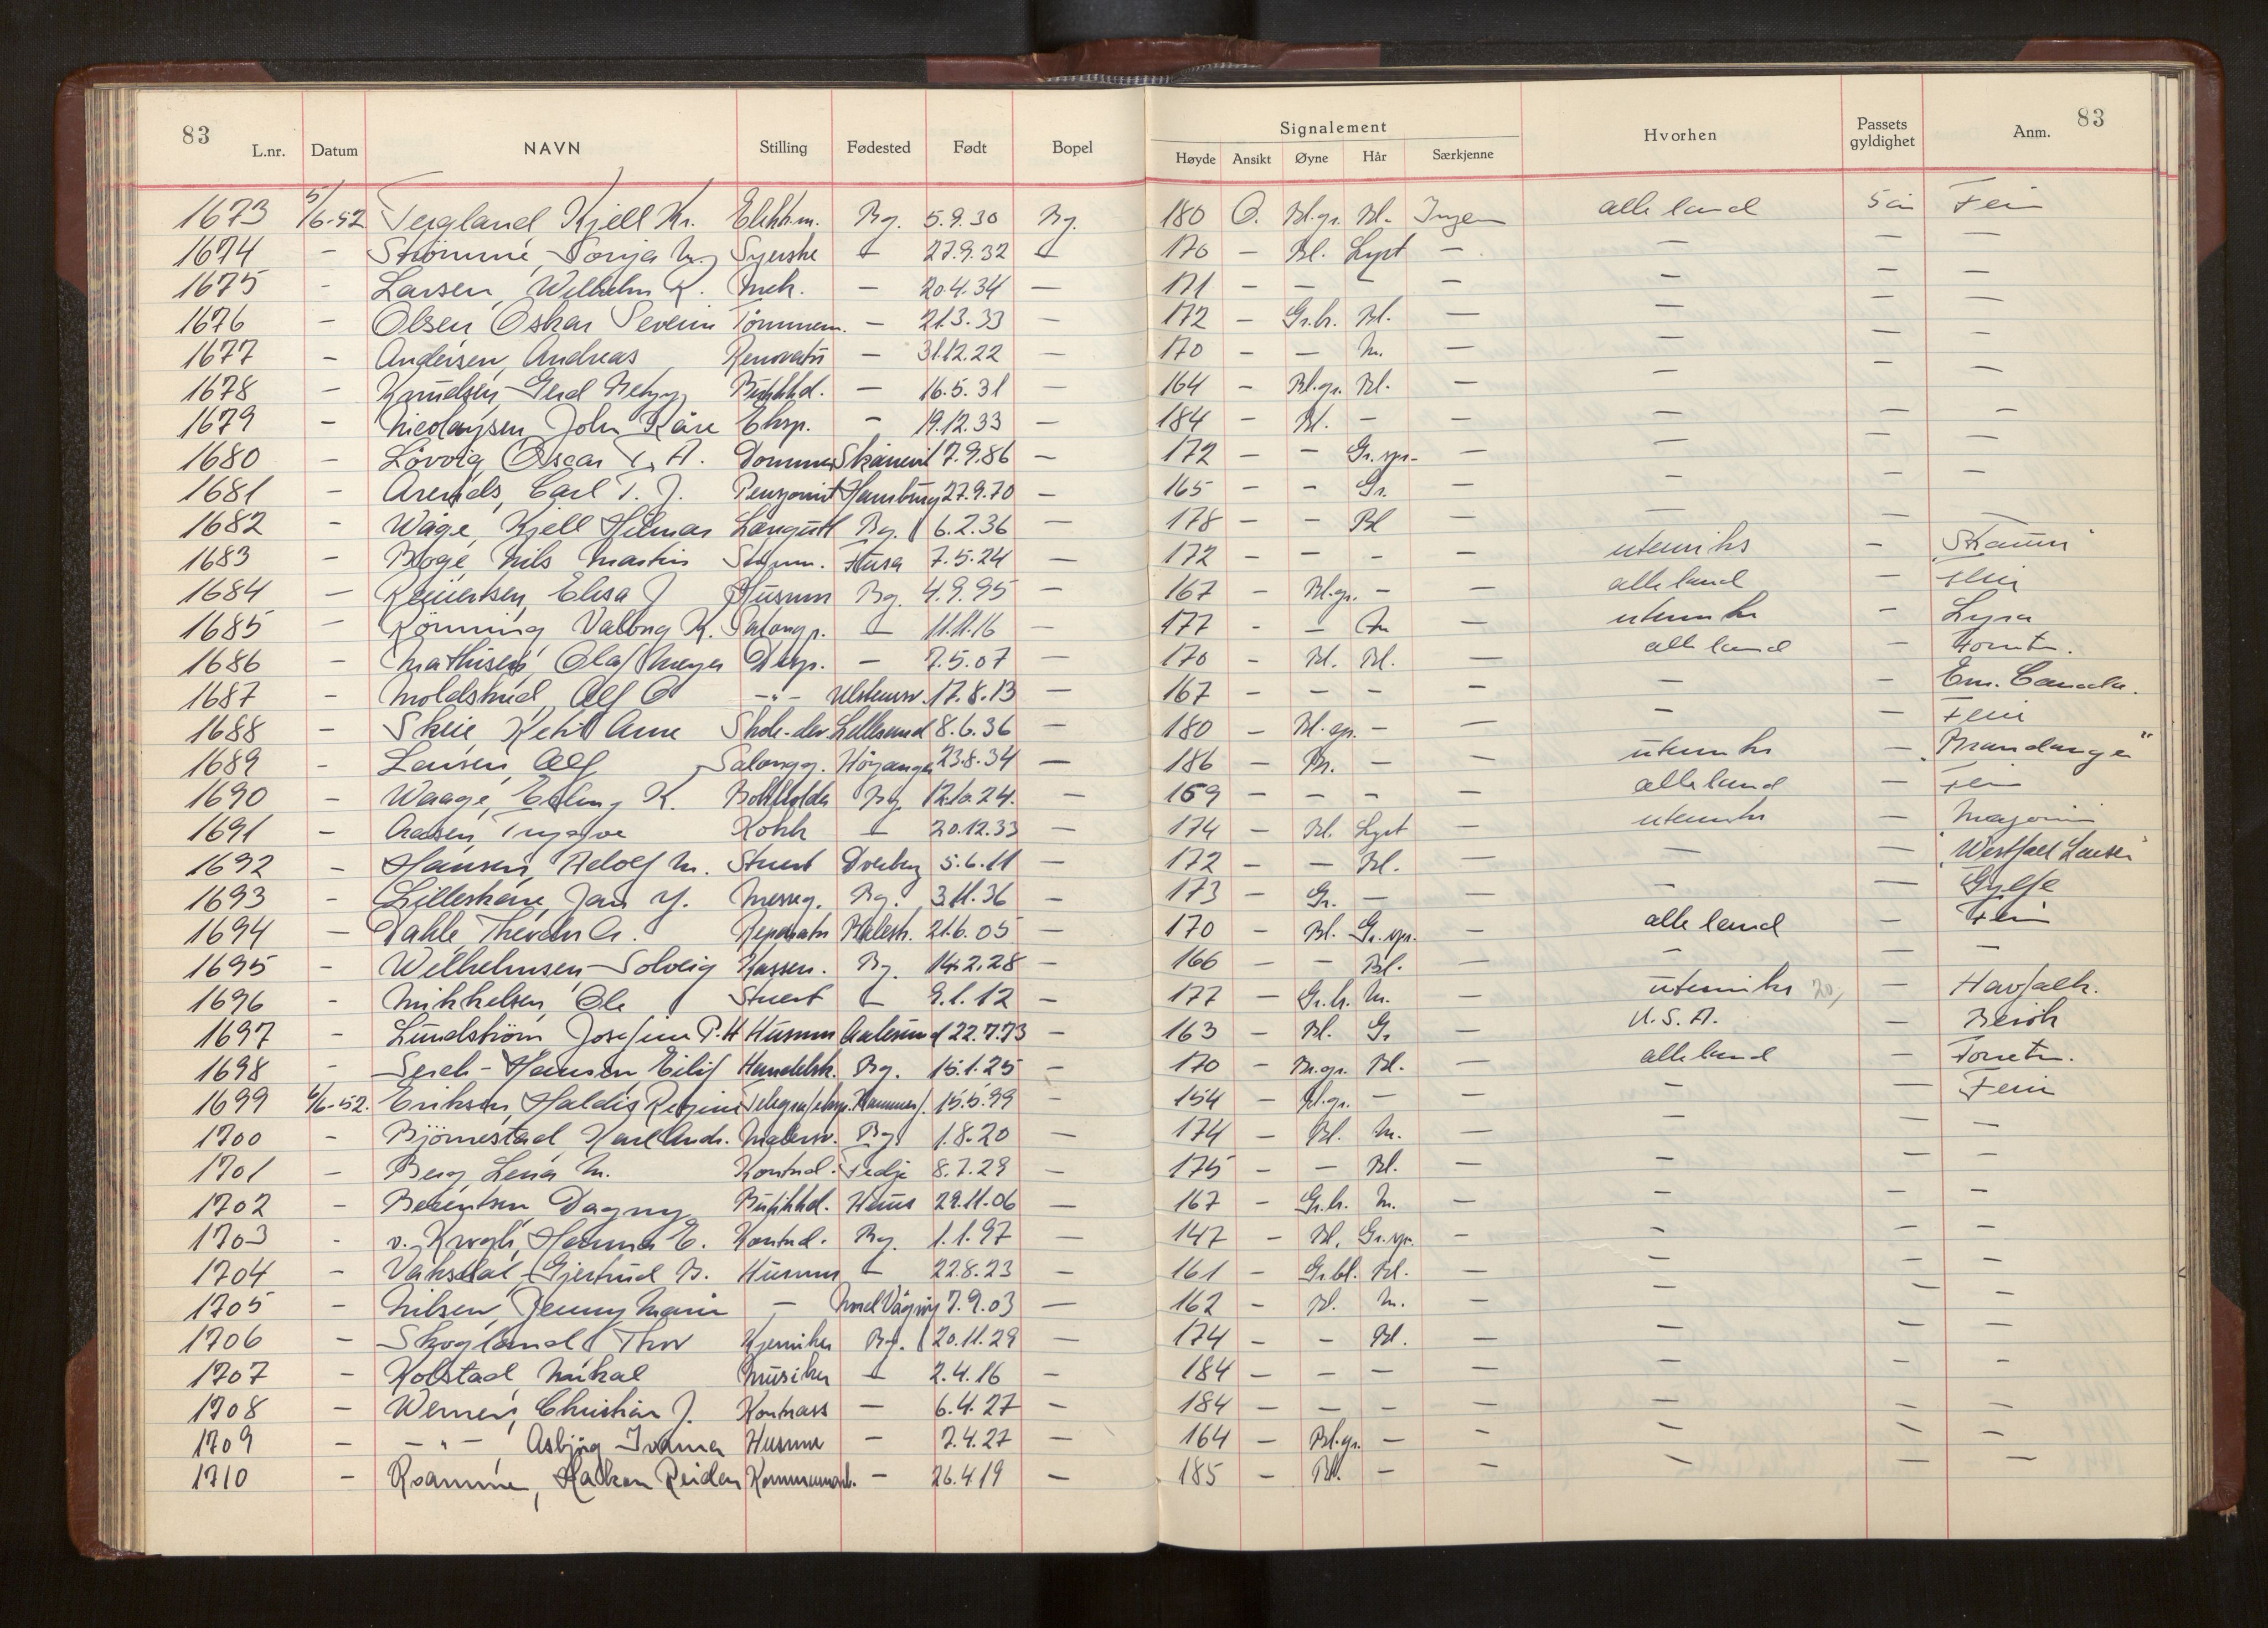 83 83
L.nr. Datum NAVN Stilling Fødested Født Bopel Signalement Hvorhen Passets gyldighet Anm.
Høyde Ansikt Øyne Hår Særkjenne
1673 5/6-52 Teigland Kjell Kr. Elektrm. Bg. 5.9.30 Bg. 180 O. Bl.gr. Bl. Ingen alle land 5 år Ferie
1674 - Strömme, Sonja M. Syerske - 27.9.32 - 170 - Bl. Lyst - - - -
1675 - Larsen, Wilhelm K. Mek. - 20.4.34 - 171 - - - - - - -
1676 - Olsen, Oskar Severin Tömmerm. - 21.3.33 - 172 - Gr.br. Bl. - - - -
1677 - Andersen, Andreas Renovatör - 31.12.22 - 170 - - M. - - - -
1678 - Knudsen, Gerd Betzy Butikkd. - 16.5.31 - 164 - Bl.gr. Bl. - - - -
1679 - Nicolaysen, John Kåre Eksp. - 19.12.33 - 184 - Bl. - - - - -
1680 - Lövvig, Oscar A. Dommer Skånevik 17.9.86 - 172 - - Gr.spr. - - - -
1681 - Arends, Carl T. J. Pensjonist Hamburg 27.9.70 - 165 - - Gr. - - - -
1682 - Wåge, Kjell Hilmar Læregutt Bg. 6.2.36 - 178 - - Bl - - - -
1683 - Boge, Nils Martin Stuem. Fusa 7.5.24 - 172 - - - - utenriks - "Skaun"
1684 - Reinertsen, Elisa J Husmor Bg. 4.9.95 - 167 - Bl.gr. - - alle land - Ferie
1685 - Rönning, Valborg K. Salongp. - 11.11.16 - 177 - - M - utenriks - Lyra
1686 - Mathisen, Olaf Meyer Disp. - 7.5.07 - 170 - Bl. Bl. - alle land - Forretn.
1687 - Moldskred, Alf O -"- Ulstensv. 17.8.13 - 167 - - - - - - Em. Canada.
1688 - Skeie, Ketil Arne Skole-elev Lillesand 8.6.36 - 180 - Bl.gr. - - - - Ferie
1689 - Larsen, Alf Salongg. Höyanger 23.8.34 - 186 - Br. - - utenriks - "Brandanger"
1690 - Waage, Erling K. Bokholder Bg. 12.10.24. - 159 - - - - alle land - Ferie
1691 - Aasen, Trygve Kokk - 20.12.33 - 174 - Bl. Lyst - utenriks -
1692 - Hansen, Adolf M. Stuert Dverberg 5.6.11 - 172 - - Bl. - - - "Westfal Larsen"
1693 - Lilleskare, Jan Y. Messeg. Bg. 3.11.36 - 173 - Gr. - - - Gylfe
1694 - Dahle, A. Reparatör Balestr. 21.6.05 - 170 - Bl. Gr.spr. - alle land - Ferie
1695 - Wilhelmsen, Solveig Kassen. Bg. 14.2.28 - 166 - - Bl. - - - -
1696 - Mikkelsen, Ole Stuert - 9.1.12 - 177 - Gr.br. M. - utenriks 20,- - Havfalk.
1697 - Lundström, Josefine P.H Husmor Aalesund 22.7.73 - 163 - Bl. Gr - U.S.A. - Besök
1698 - Serck-Hansen, Eilif Handelsk. Bg. 15.1.25 - 170 - Br.gr. Bl. - alle land - Forretn.
1699 6/6-52. Eriksen, Haldis Regine Telegrafeksp. Hammerf. 15.5.99 - 154 - Bl.gr. - - - - Ferie
1700 - Björnestad, Karl Andr. Malersv. Bg. 1.8.20 - 174 - Bl. M. - - - -
1701 - Berg, Lena M. Kontord. Fedje 8.7.29 - 175 - - Bl. - - - -
1702 - Berentsen, Dagny Butikkd. Haus 29.11.06 - 167 - Gr.br. M. - - - -
1703 - v. Krogh, Hanna E. Kontord. Bg. 1.1.97 - 147 - Bl. Gr.spr. - - - -
1704 - Vaksdal, Gjertrud B. Husmor - 22.8.23 - 161 - Gr.bl. Bl. - - - -
1705 - Nilsen, Jenny Marie - Nord Vågsöy 7.9.03 - 162 - Bl. M. - - - -
1706 - Skogland, Thor Kjemiker Bg. 20.11.29 - 174 - - Bl. - - - -
1707 - Kolstad, Mikal Musiker - 2.4.16 - 184 - - - - - - -
1708 - Werner, Christian J. Kontrass - 6.4.27 - 184 - - - - - - -
1709 - -"- Asbjörg Ivanna Husmor - 7.4.27 - 164 - Bl.gr. - - - - -
1710 - Roamme, Haakon Reidar Kommunearb. - 26.4.19 - 185 - Bl. - - - - -